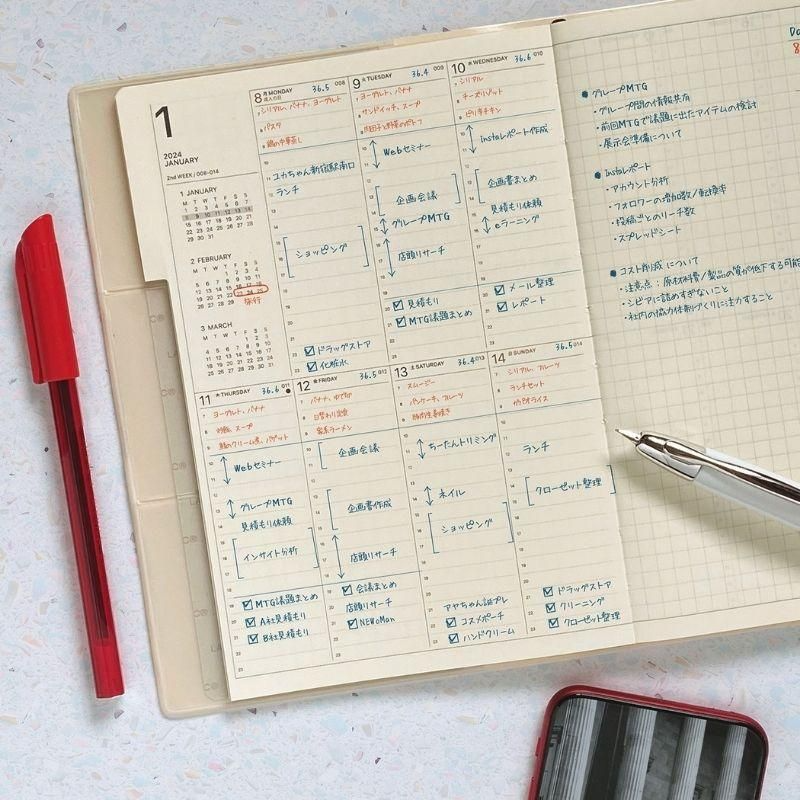 1
2024
JANUARY
2nd WEEK / 008-014
1 JANUARY
M T W T F S S
1 2 3 4 5 6 7
8 9 10 11 12 13 14
15 16 17 18 19 20 21
22 23 24 25 26 27 28
29 30 31
2 FEBRUARY
M T W T F S S
1 2 3 4
5 6 7 8 9 10 11
12 13 14 15 16 17 18
19 20 21 22 23 24 25
26 27 28 29
旅行
3 MARCH
M T W T F S S
1 2 3
4 5 6 7 8 9 10
11 12 13 14 15 16 17
18 19 20 21 22 23 24
25 26 27 28 29 30 31
8 月 MONDAY 36.5 008
成人の日
シリアル、バナナ、ヨーグルト
パスタ
鍋の中華蒸し
ユカちゃん新宿駅南口
ランチ
ショッピング
ドラッグストア
化粧水
9 火 TUESDAY 36.4 009
ヨーグルト、バナナ
サンドイッチ、スープ
肉団子と野菜のポトフ
Webセミナー
企画会議
グループMTG
店頭リサーチ
見積もり
MTG議題まとめ
10 水 WEDNESDAY 36.6 010
シリアル
チーズリゾット
ピリ辛チキン
instaレポート作成
企画書まとめ
見積もり依頼
eラーニング
メール整理
レポート
11 木 THURSDAY 36.6 011
ヨーグルト、バナナ
炒飯、スープ
鮭のクリーム煮、バゲット
Webセミナー
グループMTG
見積もり依頼
インサイト分析
MTG議題まとめ
A社見積もり
B社見積もり
12 金 FRIDAY 36.5 012
バナナ、ゆで卵
日替わり定食
家系ラーメン
企画会議
企画書作成
店頭リサーチ
会議まとめ
店頭リサーチ
NEWoMan
13 土 SATURDAY 36.4 013
スムージー
パンケーキ、フルーツ
豚肉生姜焼き
ちーたんトリミング
ネイル
ショッピング
アヤちゃん誕プレ
コスメポーチ
ハンドクリーム
14 日 SUNDAY 36.5 014
シリアル、フルーツ
ランチセット
ランチ
クローゼット整理
ドラッグストア
クリーニング
クローゼット整理
Da
8
● グループMTG
・グループ間の情報共有
・前回MTGで議題に出たアイテムの検討
・展示会準備について
● Instaレポート
・アカウント分析
・フォロワーの増加数/転換率
・投稿ごとのリーチ数
・スプレッドシート
● コスト削減 について
・注意点：原材料費/製品の質が低下する可能
・シビアに詰めすぎないこと
・社内の協力体制づくりに注力すること